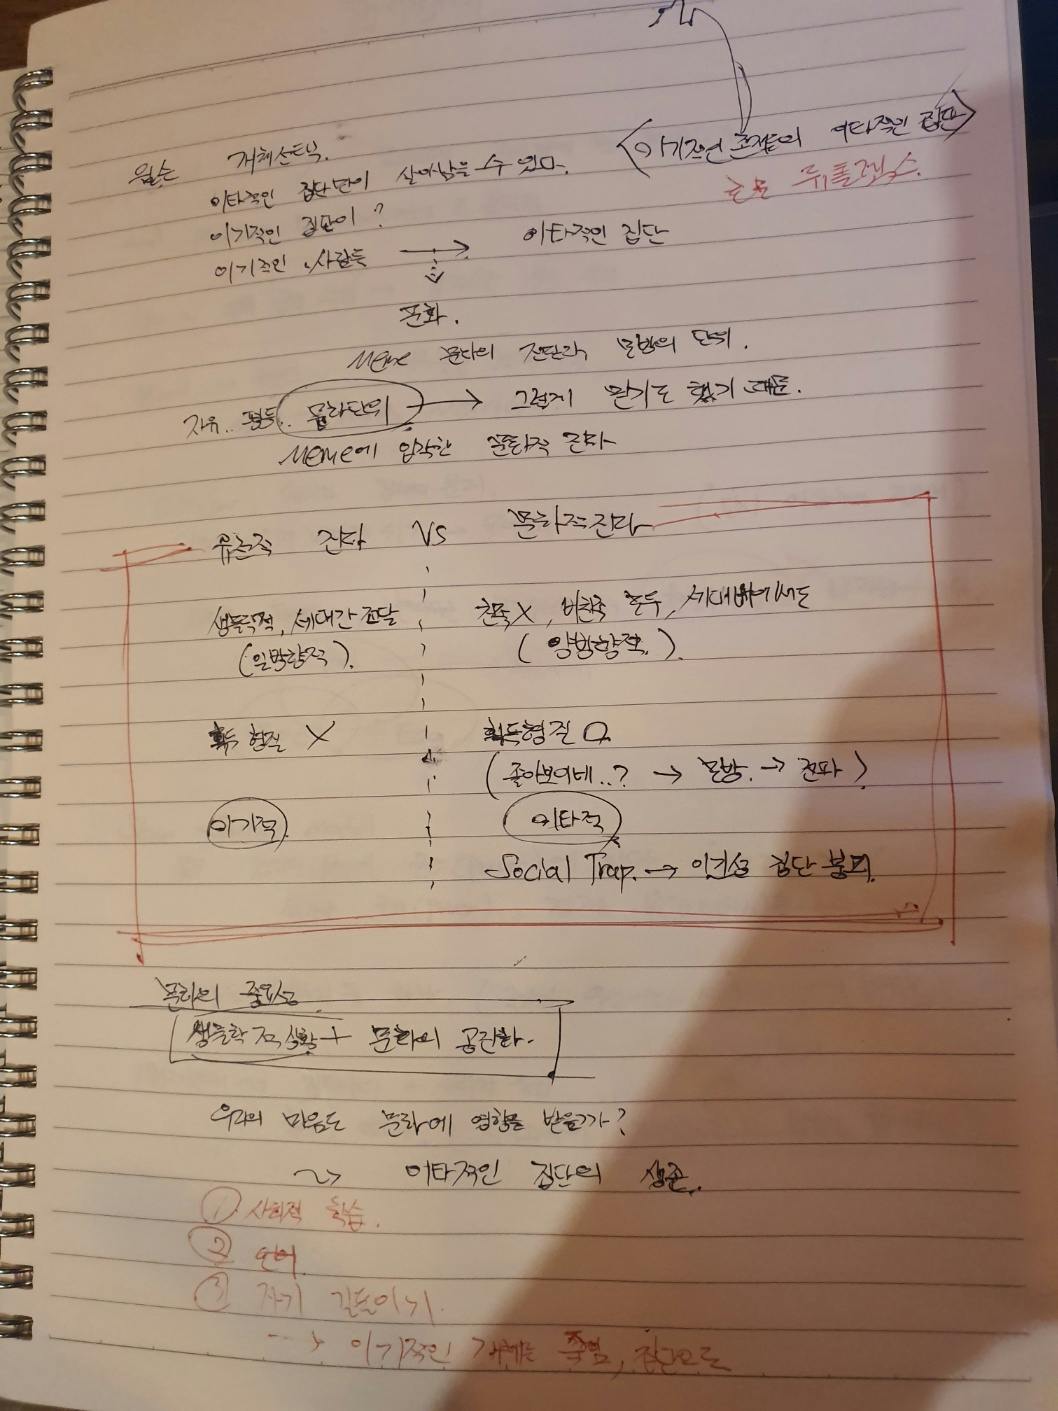 <이기적인 존재들의 이타적인 집단>
윌슨 개체선택.
이타적인 집단만이 살아남을 수 있다.
이기적인 집단이?
이기적인 사람들 → 이타적인 집단
문화.
Meme 문화의 전달과, 모방의 단위.
자유.. 평등.. 문화단위 → 그렇게 믿기로 했기 때문.
Meme에 입각한 문화적 진화
유전적 진화 VS 문화적진화
생물학적, 세대간 전달
(일방향적).
친족X, 비친족 모두, 세대내에서도
(양방향적.)
획득형질 X
획득형질 O
(좋아보이네..? → 모방. → 전파)
이기적
이타적
Social Trap. → 이건성 집단 붕괴.
문화의 중요성
생물학적 상황 + 문화의 공진화.
우리의 마음도 문화에 영향을 받을까?
~> 이타적인 집단의 생존.
① 사회적 학습.
② 언어
③ 자기 길들이기.
--> 이기적인 개체는 죽임, 집단으로